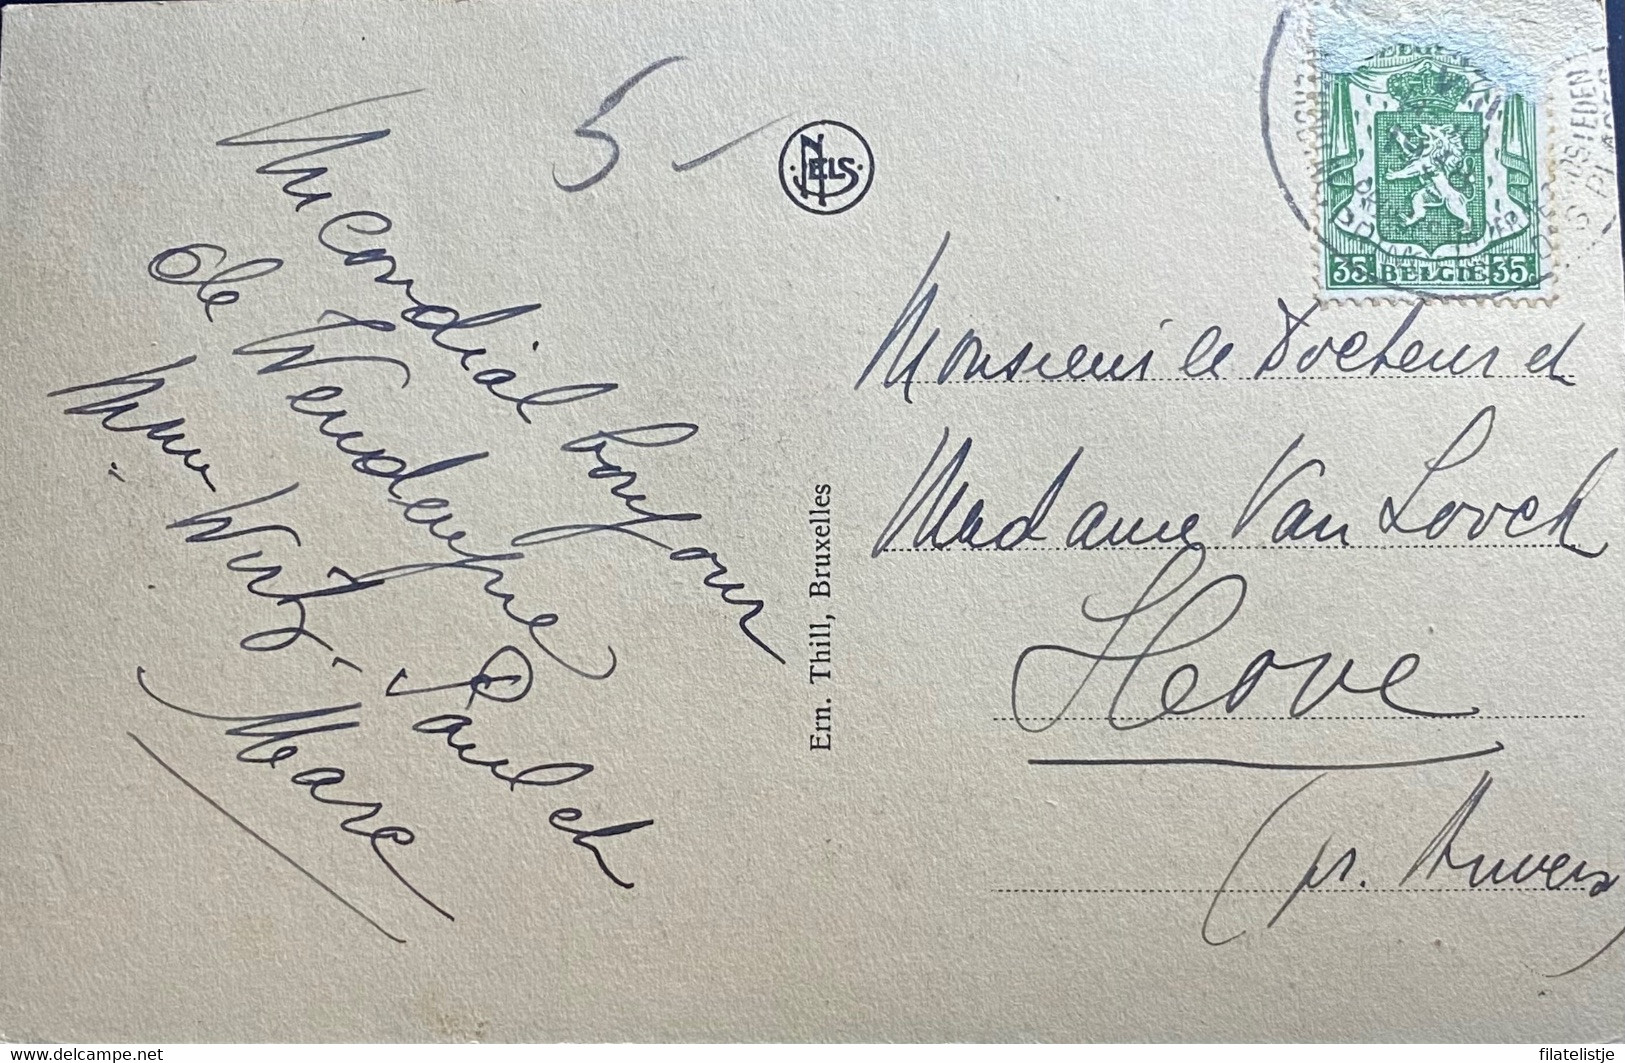 Un cordial bonjour
de Wenduyne
Mme Wirtz. Paul et
Marc
5 -
NELS
Ern. Thill, Bruxelles
35 BELGIË 35
Monsieur le Docteur et
Madame Van Loock
Hove
(pr. Anvers)
filatelistje
www.delcampe.net